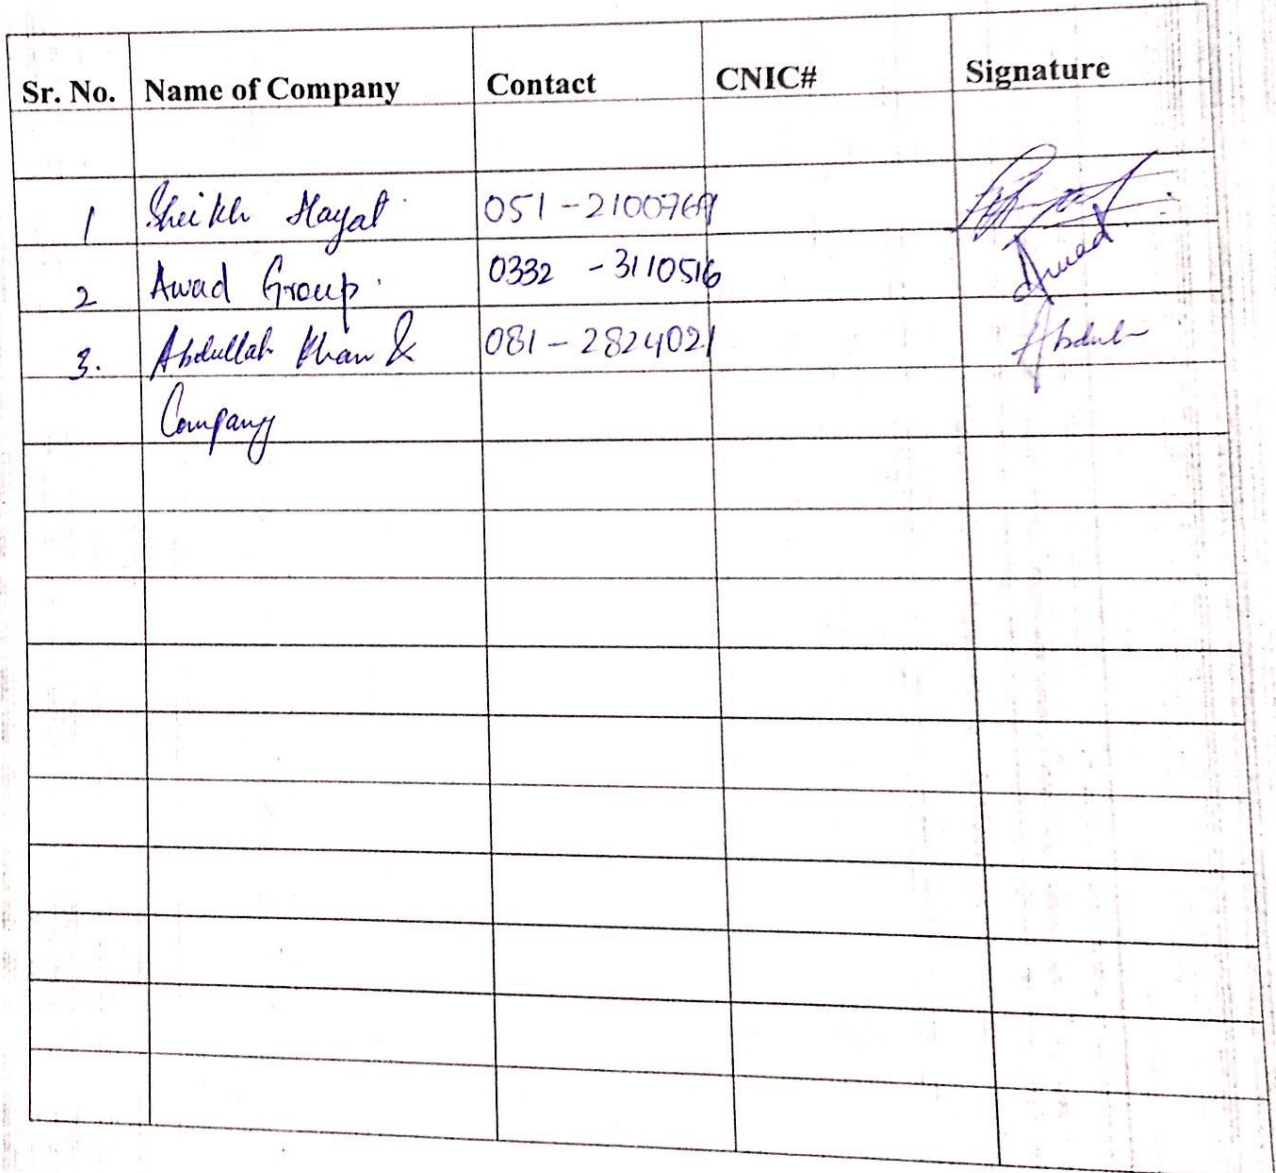 Sr. No. Name of Company Contact CNIC# Signature
1 Sheikh Hayat 051-2100769
2 Awad Group. 0332 -3110516 Awad
3. Abdullah Khan & 081-2824021
Company